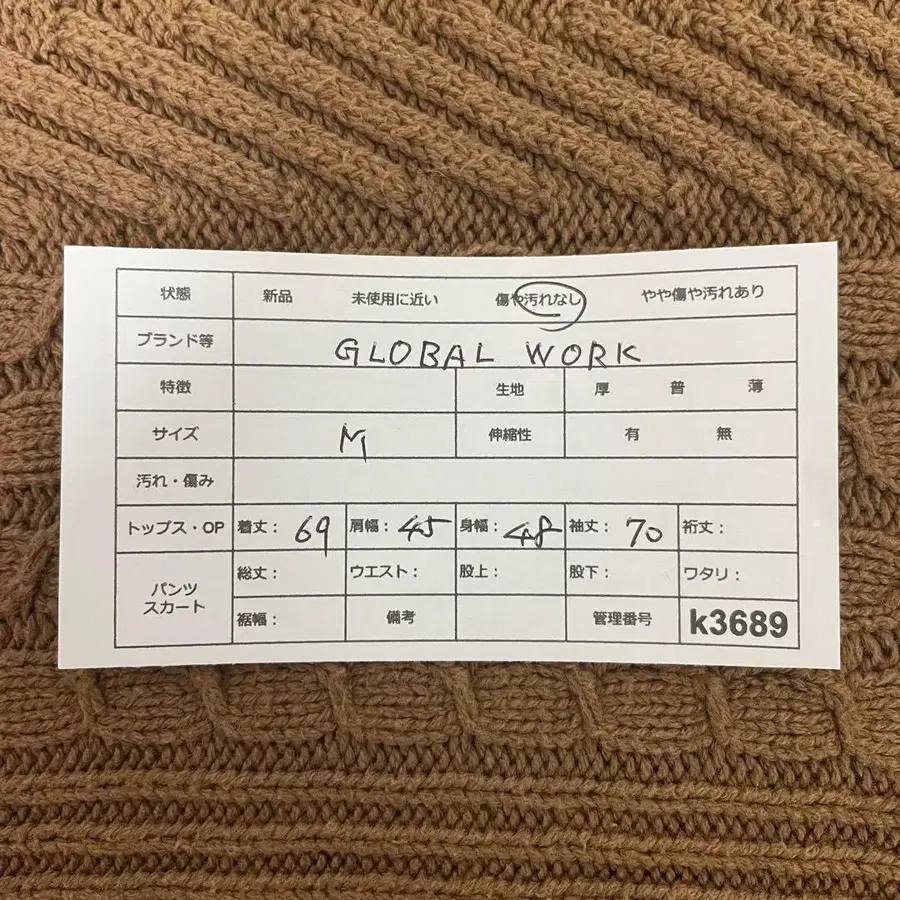 状態 新品 未使用に近い 傷や汚れなし やや傷や汚れあり
ブランド等 GLOBAL WORK
特徴 生地 厚 普 薄
サイズ M 伸縮性 有 無
汚れ・傷み
トップス・OP 着丈： 69 肩幅： 45 身幅： 48 袖丈： 70 裄丈：
パンツ スカート 総丈： ウエスト： 股上： 股下： ワタリ：
裾幅： 備考 管理番号 k3689